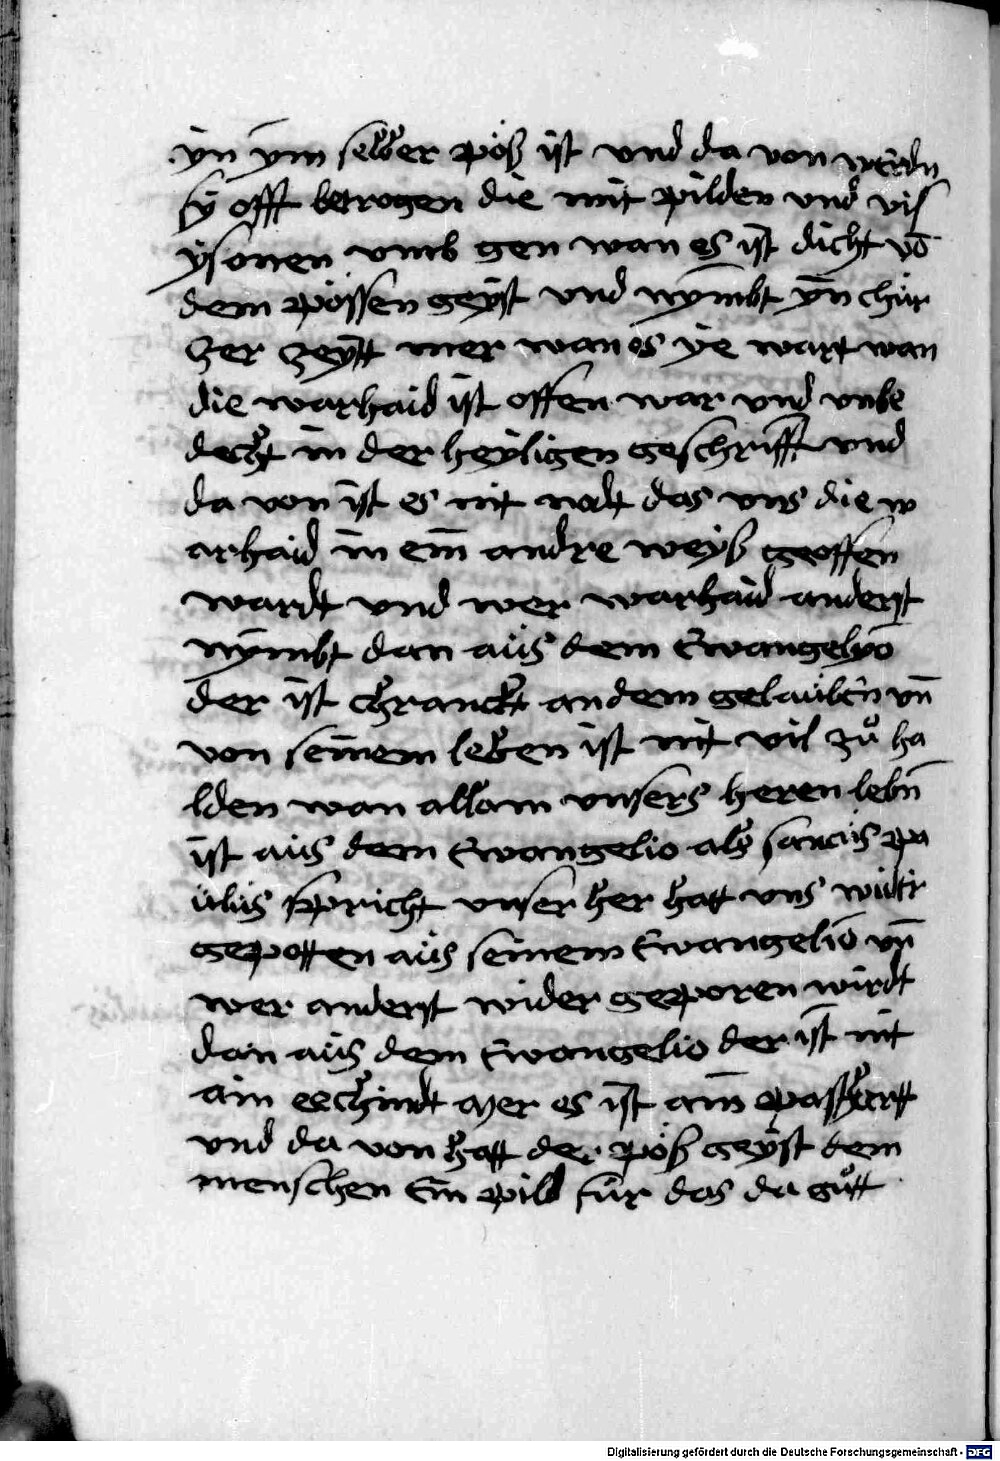 yn ym selber pöß ist vnd da von werdn
sÿ offt betrogen die mit pilden vnd vis
ysonen vmb gen wan es ist dicht vō
dem pössen geÿst vnd nȳmbt yn chür
czer zeÿtt mer wan es ye wart wan
die warhaid ist offen war vnd vnbe
decht in der heyligen geschrifft vnd
da von ist es nit das vns die w
arhaid in ein andre weyß geoffen
wardt vnd wer warhaid anderst
nȳmbt dan aüs dem Ewangelyō
der ist chranckt an dem gelaübēn vn̄
von seinem leben ist nit vil zů ha
lden wan allam vnsers heren lebn̄
ist aüs dem Ewangelio als sanctüs pa
ülüs spricht vnser her hatt vns widr
gepotten aüs seinem Ewangeliō vn̄
wer anderst wider geporen wirdt
dan aüs dem Ewangelio der ist nit
ain eechindt mer es ist ain pasthertt
vnd da von hatt der pöß geÿst dem
menschen Ein pild für das da gůtt
Digitalisierung gefördert durch die Deutsche Forschungsgemeinschaft - DFG